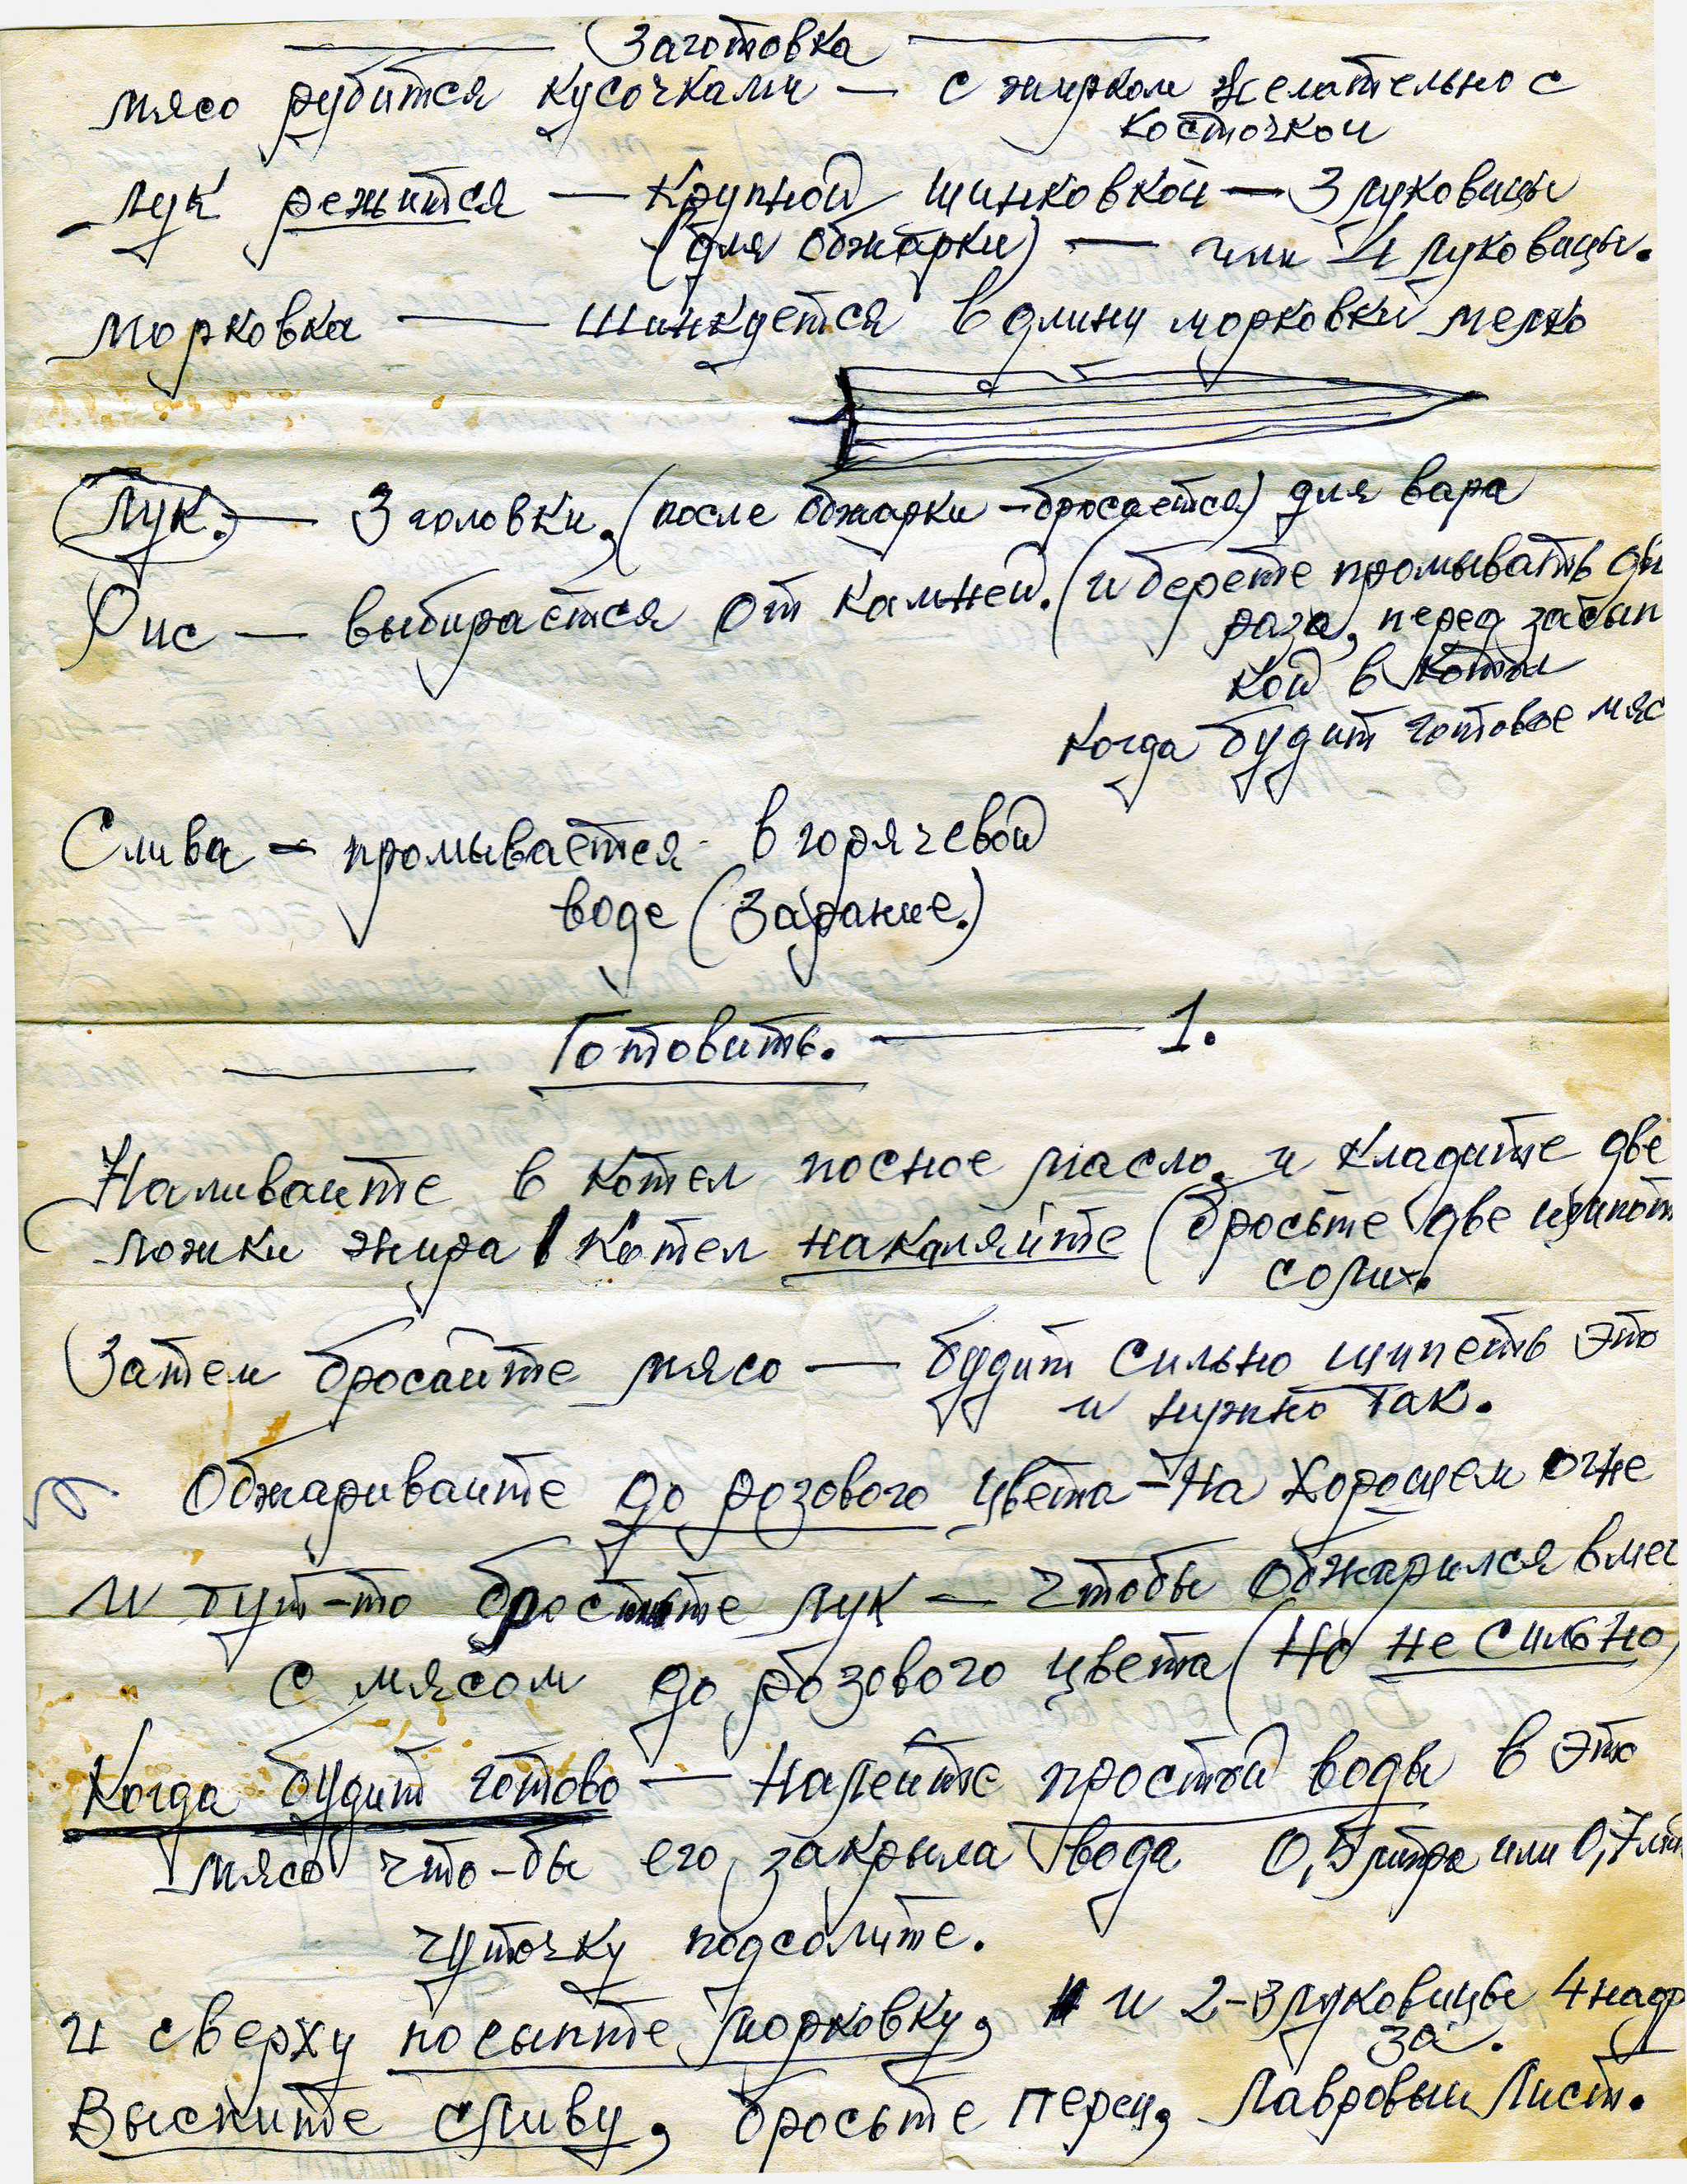 Заготовка
мясо рубится кусочками — с жирком желательно с
косточкой
лук режится — крупной шинковкой — 3 луковицы
(для обжарки) — или 4 луковицы.
Морковка — шинкуется в длину морковки мелко
Лук. — 3 головки, (после обжарки – бросается) для вара
Рис — выбирается от камней. (и берете промывать дв
раза, перед засып
кой в котел
когда будит готовое мяс
Слива – промывается в горячевой
воде (Зарание.)
Готовить. — 1.
Наливайте в котел посное масло, и кладите две
ложки жира Котел накаляйте (бросьте две щипот
соли.
Затем бросайте мясо — будит сильно шипеть это
и нужно так.
Обжаривайте до розового цвета – на хорошем огне
и тут-то бростте лук — чтобы обжарился вмес
с мясом до розового цвета (но не сильно)
Когда будит готово — налейте простой воды в это
мясо что-бы его закрыла вода 0,5 литра или 0,7 лит
чуточку подсолите.
и сверху посыпте морковку, и 2-3 луковицы 4 надр
за.
Выските сливу, бросьте перец, Лавровый Лист.